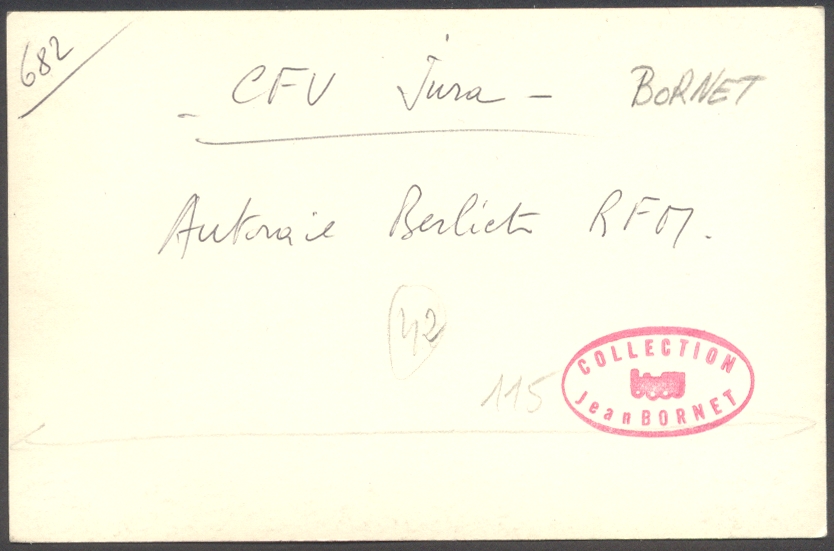 682
CFV Jura - BORNET
Autorail Berliet RFM.
42
115
COLLECTION
Jean BORNET